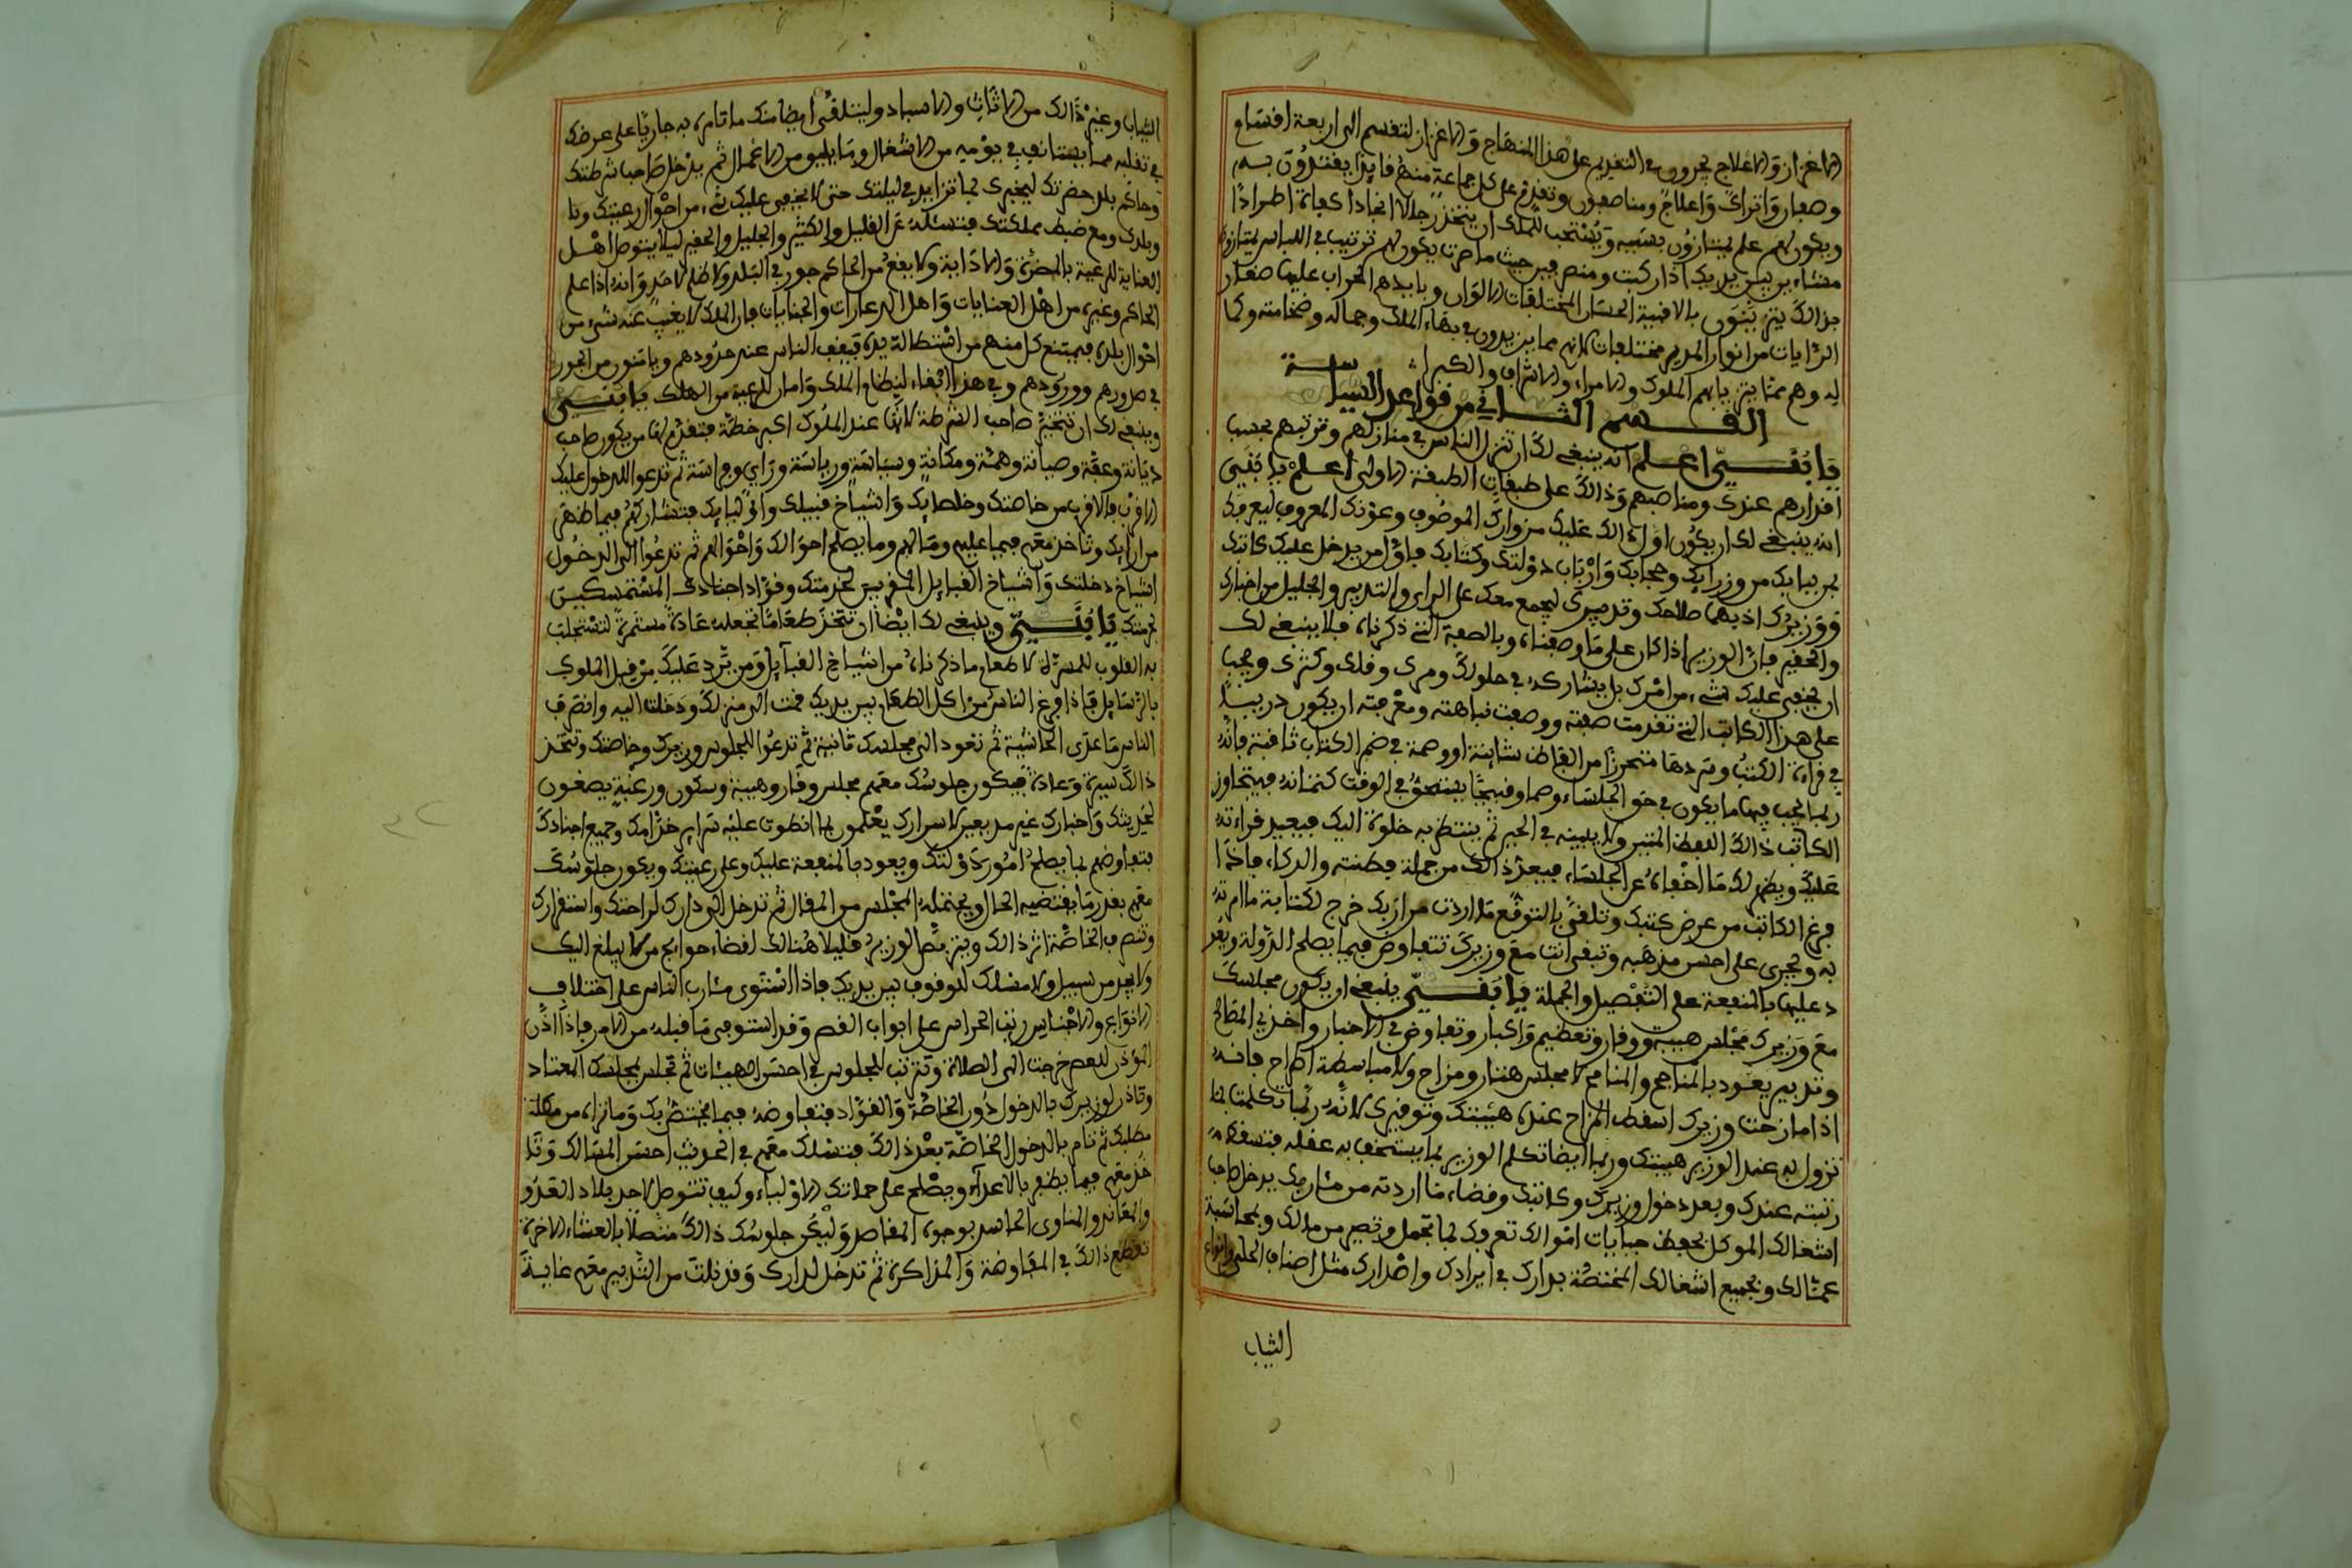 الاغزاز والاعلاج يجرون في التقديم على هذا المنهاج والاغزاز تنقسم الى اربعة اقسام
وصغار واتراك واعلاج ومناصفون وتقدم على كل جماعة منهم قايدا يقتدون به
ويكون لهم علم يمتازون بسببه ويستحب للملك ان يتخذ رجالا انجادا كماة اطرادا
مشاءين بين يديك اذا ركبت ومنصرفين حيث ما صرت يكون لهم ترتيب في اللباس يمتازون
بذالك يتزينون بالاقبية الحسان المختلفات الالوان وبايديهم الحراب عليها صغار
الرايات من انوار الحرير مختلفات لانهم مما يزيدون في بهاء الملك وجماله وضخامته وكما
له وهم مما يتزيا بهم الملوك والامراء والاشراف والكبراء
القسم الثاني من قواعد السياسة
يا بني اعلم انه ينبغي لك ان تنزل الناس في منازلهم وترتبهم بحسب
اقدارهم عندك ومناصبهم وذالك على طبقات الطبقة الاولى اعلم يا بني
انه ينبغي لك ان يكون اول دالك عليك من زوارك الموصوف وعونك المعروف ليعرفك
بمن ببابك من وزرايك وحجابك وارباب دولتك وكتابك فاول من يدخل عليك كاتبك
ووزيرك اذ بهما صلاحك وتدبيرك ليجمع معك على الراي والتدبير والجليل من اخبارك
والحقير فان الوزير اذا كان على ما وصفناه وبالصفة التي ذكرناه فلا ينبغي لك
ان يخفى عليك شيء من امرك بل يشاركه في حلوك ومرك وقلك وكثرك ويجب
على هذا الكاتب التي تقدمت صفته ووصفت نباهته ومعرفته ان يكون دربيا
في قراءة الكتب وسردها متحرزا من الفاظ شاينة او وصمة في ضم الكتاب ثافنة فانه
ربما يجب فيها ما يكون في حق الجلساء وصما وقبيحا يستحق في الوقت كتمانه فيتجاوز
الكاتب ذالك اللفظ المتير ولا يبينه في الحين ثم ينتظر به خلوة اليك فيعيد قراءته
عليك ويظهر لك ما اخفاه عن الجلساء فيعد ذالك من جملة فطنته والذكاء فاذا
فرغ الكاتب من عرض كتبك وتلقى بالتوقع ما اردت من اربك خرج لكتابة ما امرته
به وجرى على احسن مذهبه وتبقى انت مع وزيرك تتفاوض فيما يصلح الدولة ويعو
د عليها بالمنفعة على التفصيل والجملة يا بني ينبغي ان يكون مجلسك
مع وزيرك مجلس هيبة ووقار وتعظيم واكبار وتفاوض في الاخبار واخذ في المصالح
وتدبير يعود بالمناجح والمنافع لا مجلس هتار ومزاح ولا مباسطة اطراح فانه
اذا مازحت وزيرك اسقط المزاح عنده هيبتك وتوقيرك لانه ربما تكلمت بما
تزول به عند الوزير هيبتك وربما ايضا تكلم الوزير بما يستخف به عقله فتسقط
رتبته عندك وبعد دخول وزيرك وكاتبك وقضاء ما اردته من مئاربك يدخل صاحب
اشغالك الموكل بحفظ جبايات اموالك تعرفك بما تجمل وتصير من مالك وبمحاسبة
عمالك وبجميع اشغالك المختصة بدارك في ايرادك واصدارك مثل اصناف الحلي وانواع
الثياب
الثياب وغير ذالك من الاثاث والاسباد وليتلقى ايضا منك ما تامره به جاريا على عرضك
في تقلبه مما يستانف في يومه من الاشغال وما يليه من الاعمال ثم يدخل صاحب شرطتك
وحاكم بلد حضرتك ليخبرك بما تزايد في ليلتك حتى لا يخفى عليك شيء من احوال رعيتك ونا
وبلدك ومع ضبط مملكتك فتسئله عن القليل والكثير والجليل والحقير ليلا يتوصل اهل
العناية للرعية بالمضرة والاذاية ولا يقع من الحاكم جور في البلد ولا ظلم لاحد وانه اذا علم
الحاكم وغيره من اهل العنايات واهل الدعارات والجنايات فان الملك لا يغيب عنه شيء من
احوال بلده فيمتنع كل منهم من استطالة يده فيقف الناس عند حدودهم ويامنون من الجور
في صدورهم وورودهم وفي هذا ابقاء لنظام الملك وامان للرعية من الهلك يا بني
وينبغي لك ان تتخير صاحب الشرطة لانها عند الملوك اكبر خطة فتقدم لها من يكون صاحب
ديانة وعفة وصيانة وهمة ومكانة وسياسة ورياسة وراي وفراسة ثم تدعوا للدخول عليك
الاقرب فالاقرب من خاصتك وخلطايك واشياخ قبيلك واوليايك فتشاركهم فيما ظهر
من رايك وتاخذ معهم فيما عليهم وما لهم وما يصلح احوالك واحوالهم ثم تدعوا الى الدخول
اشياخ دخلتك واشياخ القبايل المقربين لخدمتك وقواد اجنادك المستمسكين
بحرمتك يا بني وينبغي لك ايضا ان تتخذ طعاما تجعله عادة مستمرة لتستجلب
به القلوب للمسرة لاطعام ما ذكرناه من اشياخ القبايل ومن يرد عليك من قبل الملوك
بالرسايل فاذا فرغ الناس من اكل الطعام بين يديك قمت الى منزلك ودخلت اليه وانصرف
الناس ما عدى الحاشية ثم تعود الى مجلسك ثانية ثم تدعوا للجلوس وزيرك وخاصتك وتتخذ
ذالك سيرة وعادة فيكون جلوسك معهم مجلس وقار وهيبة وسكون ورغبة يصغون
لحديثك واخبارك غير مذيعين لاسرارك يعلمون بما انطوت عليه سراير خدامك وجميع اجنادك
فتفاوضهم بما يصلح امور دولتك ويعود بالمنفعة عليك وعلى رعيتك ويكون جلوسك
معهم بقدر ما يقتضيه الحال ويحتمله المجلس من المقال ثم تدخل الى دارك لراحتك واستقرارك
وتنصرف الخاصة اثر ذالك ويتربص الوزير قليلا هنالك لقضاء حوايج من لا يبلغ اليك
ولا يجد من سبيل ولا مسلك للوقوف بين يديك فاذا استوفى مئارب الناس على اختلاف
الانواع والاجناس رتب الحراس على ابواب القصر وقد استوفى ما قبله من الامر فاذا اذن
المؤذن للعصر خرجت الى الصلاة وترتب للجلوس في احسن الهيئات ثم تجلس بمجلسك المعتاد
وتاذن لوزيرك بالدخول دون الخاصة والقواد فتفاوضه فيما يختص بك وما تراه من مصلحة
مطلبك ثم تامر بالدخول الخاصة بعد ذالك فتسلك معهم في الحديث احسن المسالك وتا
خذ معهم فيما يظفر بالاعداء ويصلح على حملتك الاولياء وكيف تتوصل لاخذ بلاد العدو
والمعاند والمناوي الحاسد بوجوه المقاصد وليكن جلوسك ذالك متصلا بالعشاء الاخرة
تقطع ذالك في المفاوضة والمذاكرة ثم تدخل لدارك وقد نلت من التدبير معهم غاية